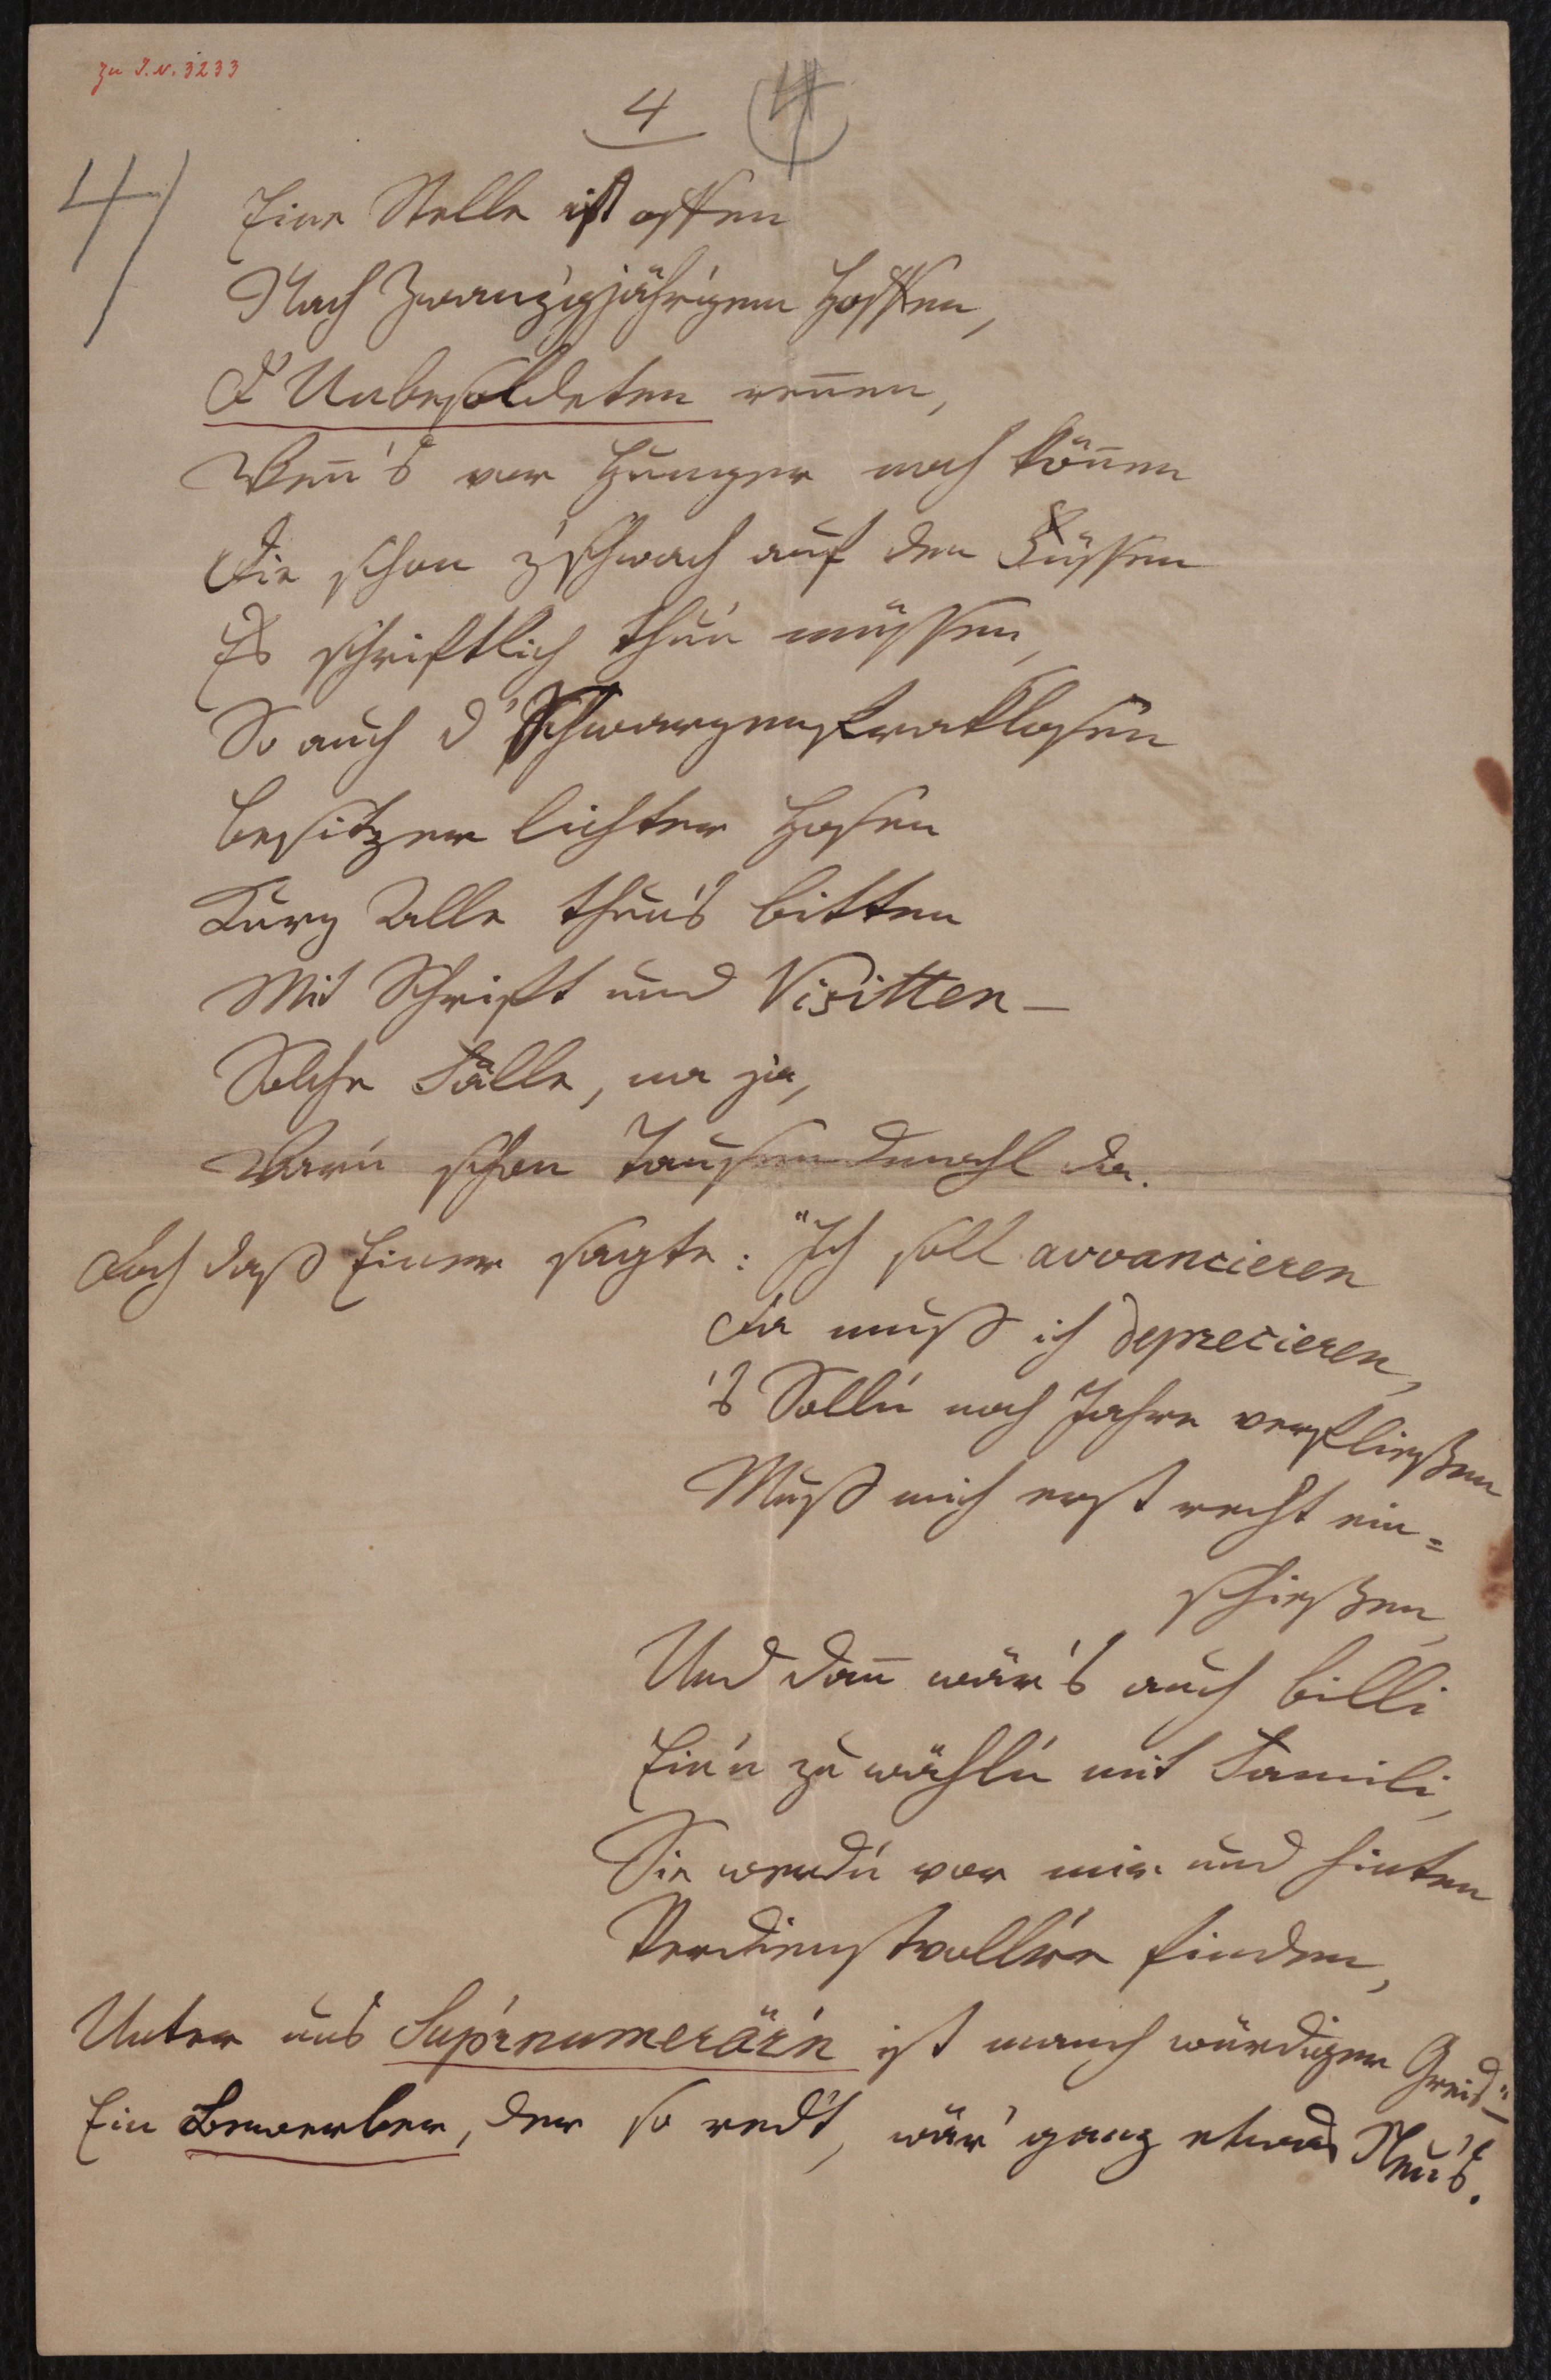 Zu I.N. 3233
4 4
4)
Eine Stelle ist offen
Nach zwanzigjährigem Hoffen,
D' Unbesoldeten reñen,
Weñ's vor Hunger noch köñen
Die schon z'schwach auf den Füssen
Es schriftlich thu'n müssen,
So auch d' Schwarzenfracklosen
Besitzer lichter Hosen
Kurz Alle thun's bitten
Mit Schrift und Visitten –
Solche Fälle, na ja,
War'n schon Tausendmahl da.
Doch daß Einer sagte: "Ich soll avvancieren
Da muß ich deprecieren,
's Soll'n noch Jahre verfließen
Muß mich erst recht ein=
schießen,
Und dañ wär's auch billi
Ein'n zu wähl'n mit Famili,
Sie werd'n vor mir und hinten
Verdienstvoll're finden,
Unter uns Sup'rnumerär'n ist manch würdiger Greis" –
Ein Bewerber, der so red't, wär' ganz etwas Neu's.